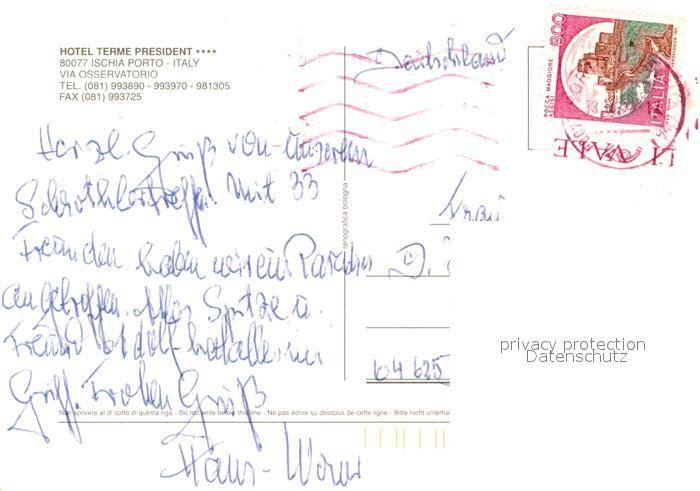 HOTEL TERME PRESIDENT ★★★★
80077 ISCHIA PORTO - ITALY
VIA OSSERVATORIO
TEL. (081) 993890 - 993970 - 981305
FAX (081) 993725
Deutschland
800
ROCCA MAGGIORE
ASSISI
ITALIA
Herzl. Gruß von unserem
mit 33
Freunden haben wir ein Paradies
angetroffen. Alles Spitze u.
Griff. Frohen Gruß
Hans-
Frau
D.
64625
renografica bologna
Non scrivere al di sotto di questa riga - Do not write below this line - Ne pas écrire su dessous de cette ligne - Bitte nicht unterhal
privacy protection
Datenschutz